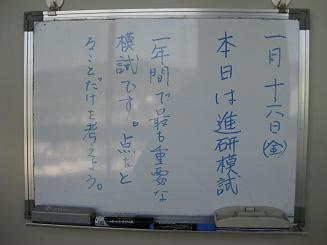 一月十六日(金)
本日は進研模試
一年間で最も重要な
模試です。点をと
ることだけを考えよう。